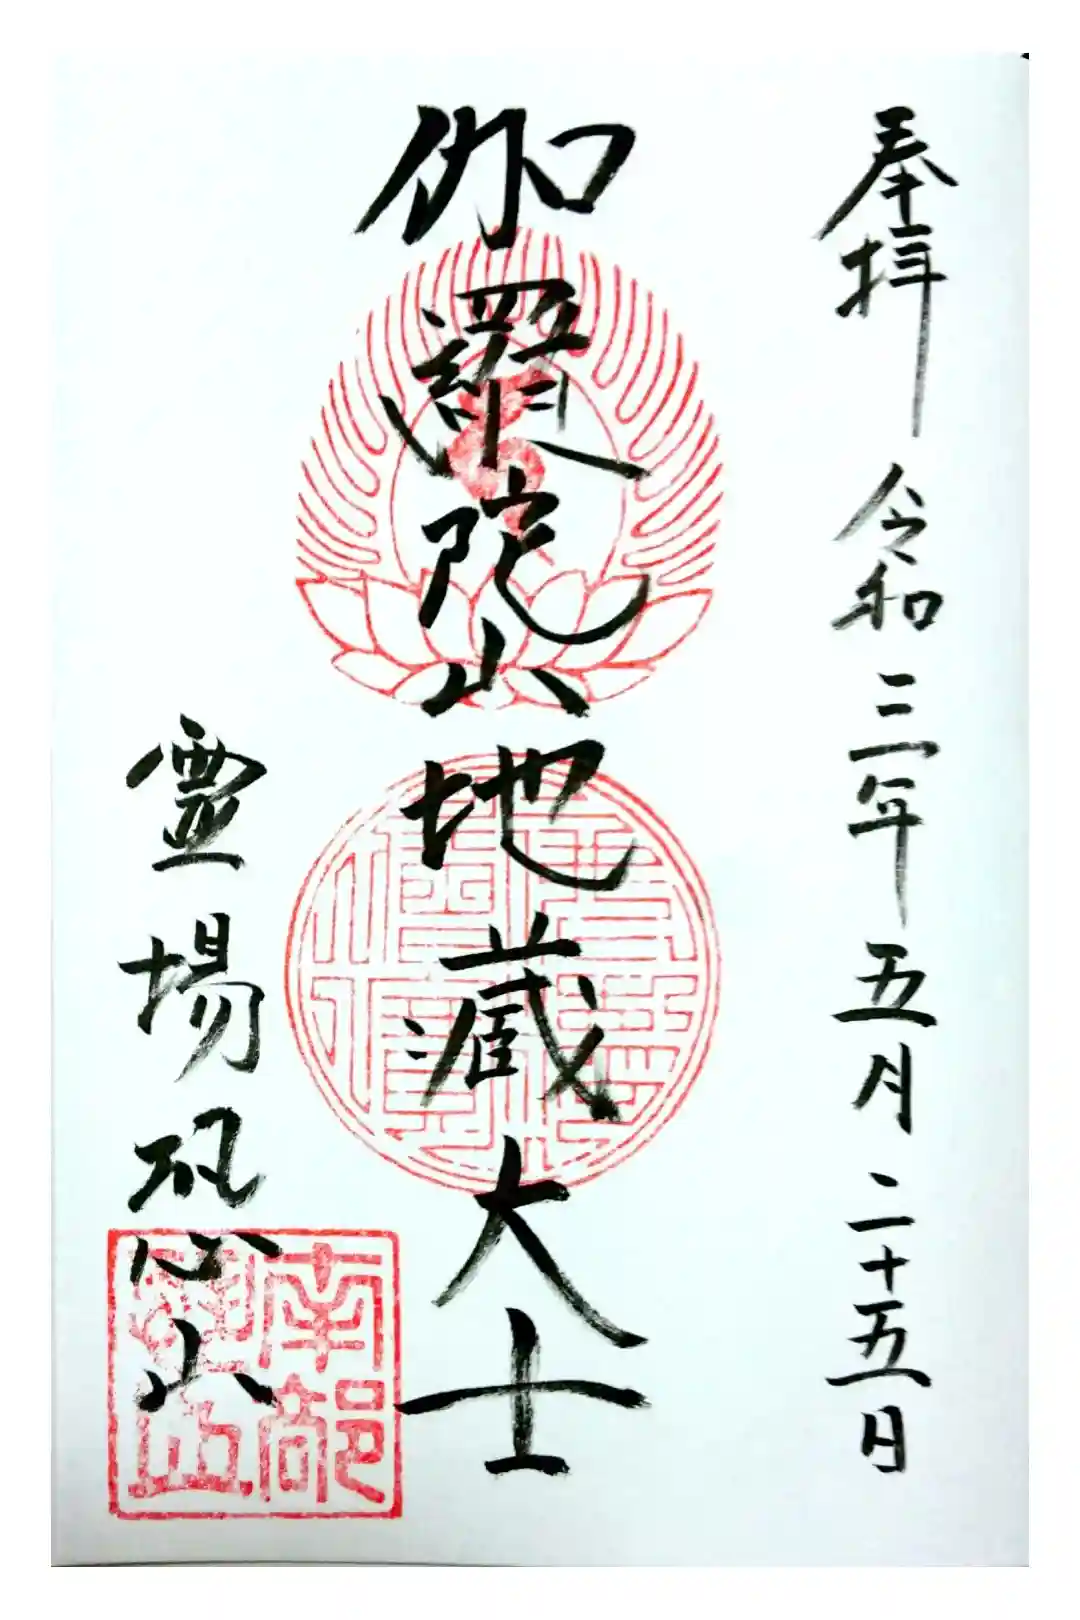 奉拝 令和三年五月二十五日
伽羅陀山地蔵大士
霊場恐山
南部